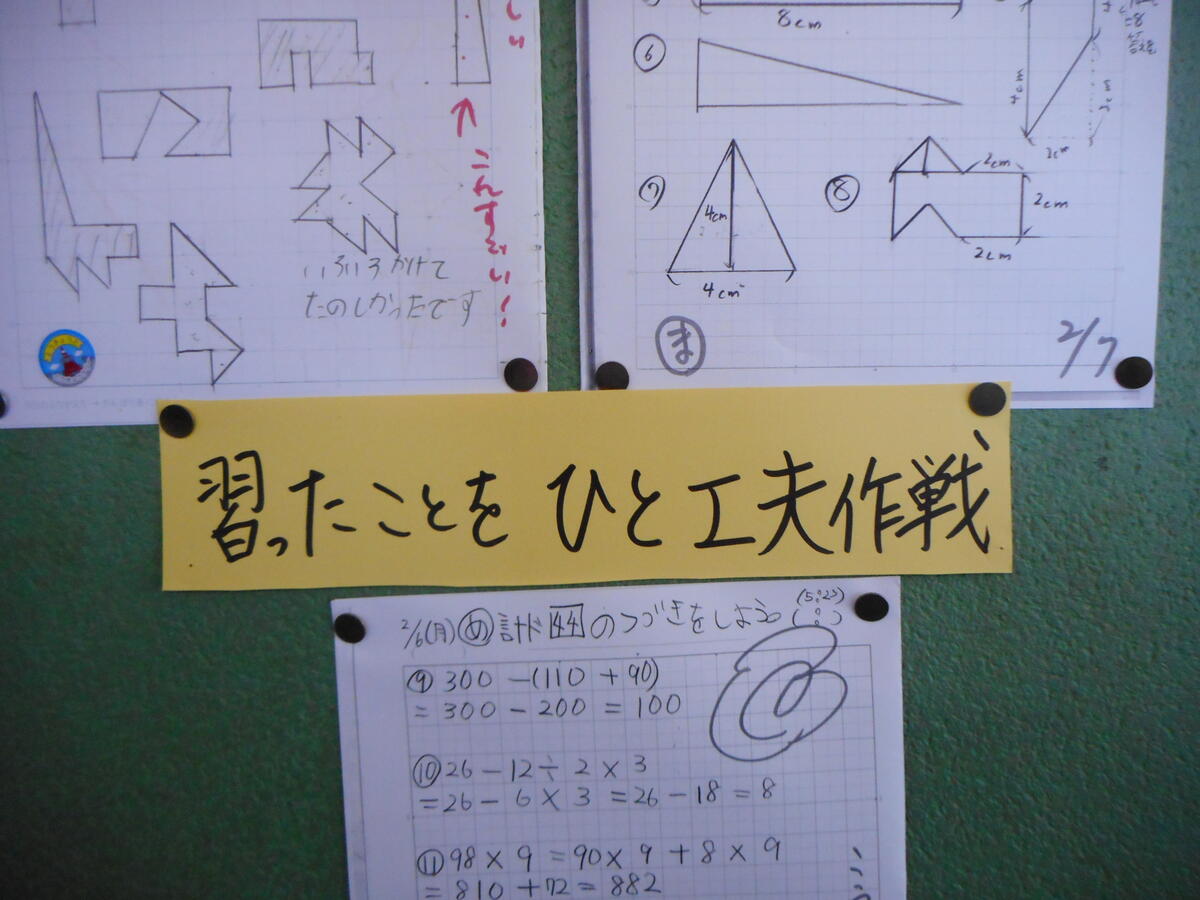 しい
↑
こんすごい!
いろいろかけて
たのしかったです
8cm
⑥
4cm
2cm
⑦
4cm
4cm
⑧
2cm
2cm
2cm
ま
2/7
習ったことを ひと工夫作戦
2/6(月) め 計ド 44 のつづきをしよう
(5:23)
⑨ 300 -(110 + 90)
= 300 - 200 = 100
⑩ 26 - 12 ÷ 2 × 3
= 26 - 6 × 3 = 26 - 18 = 8
⑪ 98 × 9 = 90 × 9 + 8 × 9
= 810 + 72 = 882